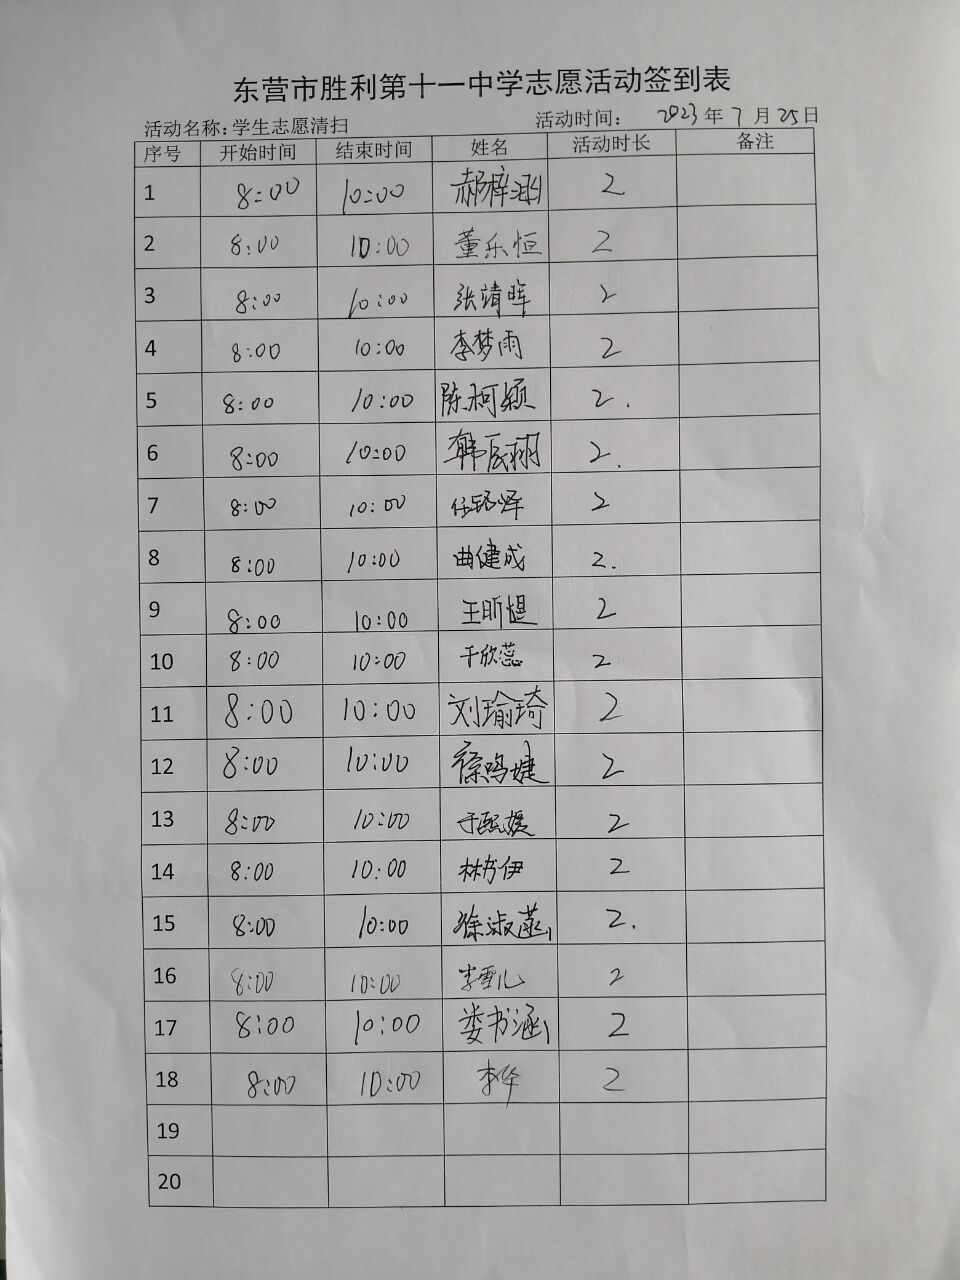 东营市胜利第十一中学志愿活动签到表
活动名称:学生志愿清扫 活动时间: 2023年7月25日
序号 开始时间 结束时间 姓名 活动时长 备注
1 8:00 10:00 郝梓涵 2
2 8:00 10:00 董乐恒 2
3 8:00 10:00 张靖晖 2
4 8:00 10:00 李梦雨 2
5 8:00 10:00 陈柯颖 2.
6 8:00 10:00 韩辰翔 2.
7 8:00 10:00 2
8 8:00 10:00 曲健成 2.
9 8:00 10:00 王昕煜 2
10 8:00 10:00 于欣蕊 2
11 8:00 10:00 刘瑜琦 2
12 8:00 10:00 徐鸣婕 2
13 8:00 10:00 于熙媛 2
14 8:00 10:00 2
15 8:00 10:00 2.
16 8:00 10:00 李雪儿 2
17 8:00 10:00 娄书涵 2
18 8:00 10:00 李华 2
19
20